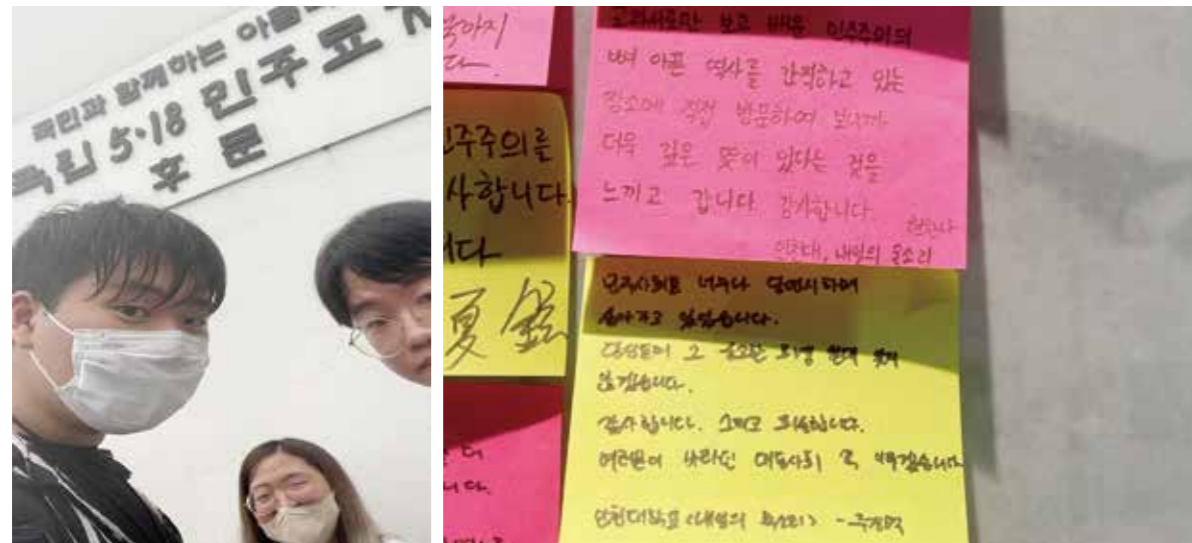 국민과 함께하는 아름
국립 5·18 민주묘지
후문
다.
민주주의를
사합니다.
니다
夏 鉉
교과서로만 보고 배운 민주주의의
뼈 아픈 역사를 간직하고 있는
장소에 직접 방문하여 보니까
더욱 깊은 뜻이 있다는 것을
느끼고 갑니다. 감사합니다.
인천대, 내일의 목소리
민주사회를 너무나 당연시하며
살아가고 있었습니다.
당신들의 그 숭고한 희생 절대 잊지
않겠습니다.
감사합니다. 그리고 죄송합니다.
여러분이 바라신 대동사회 꼭
인천대학교 <내일의 목소리> -